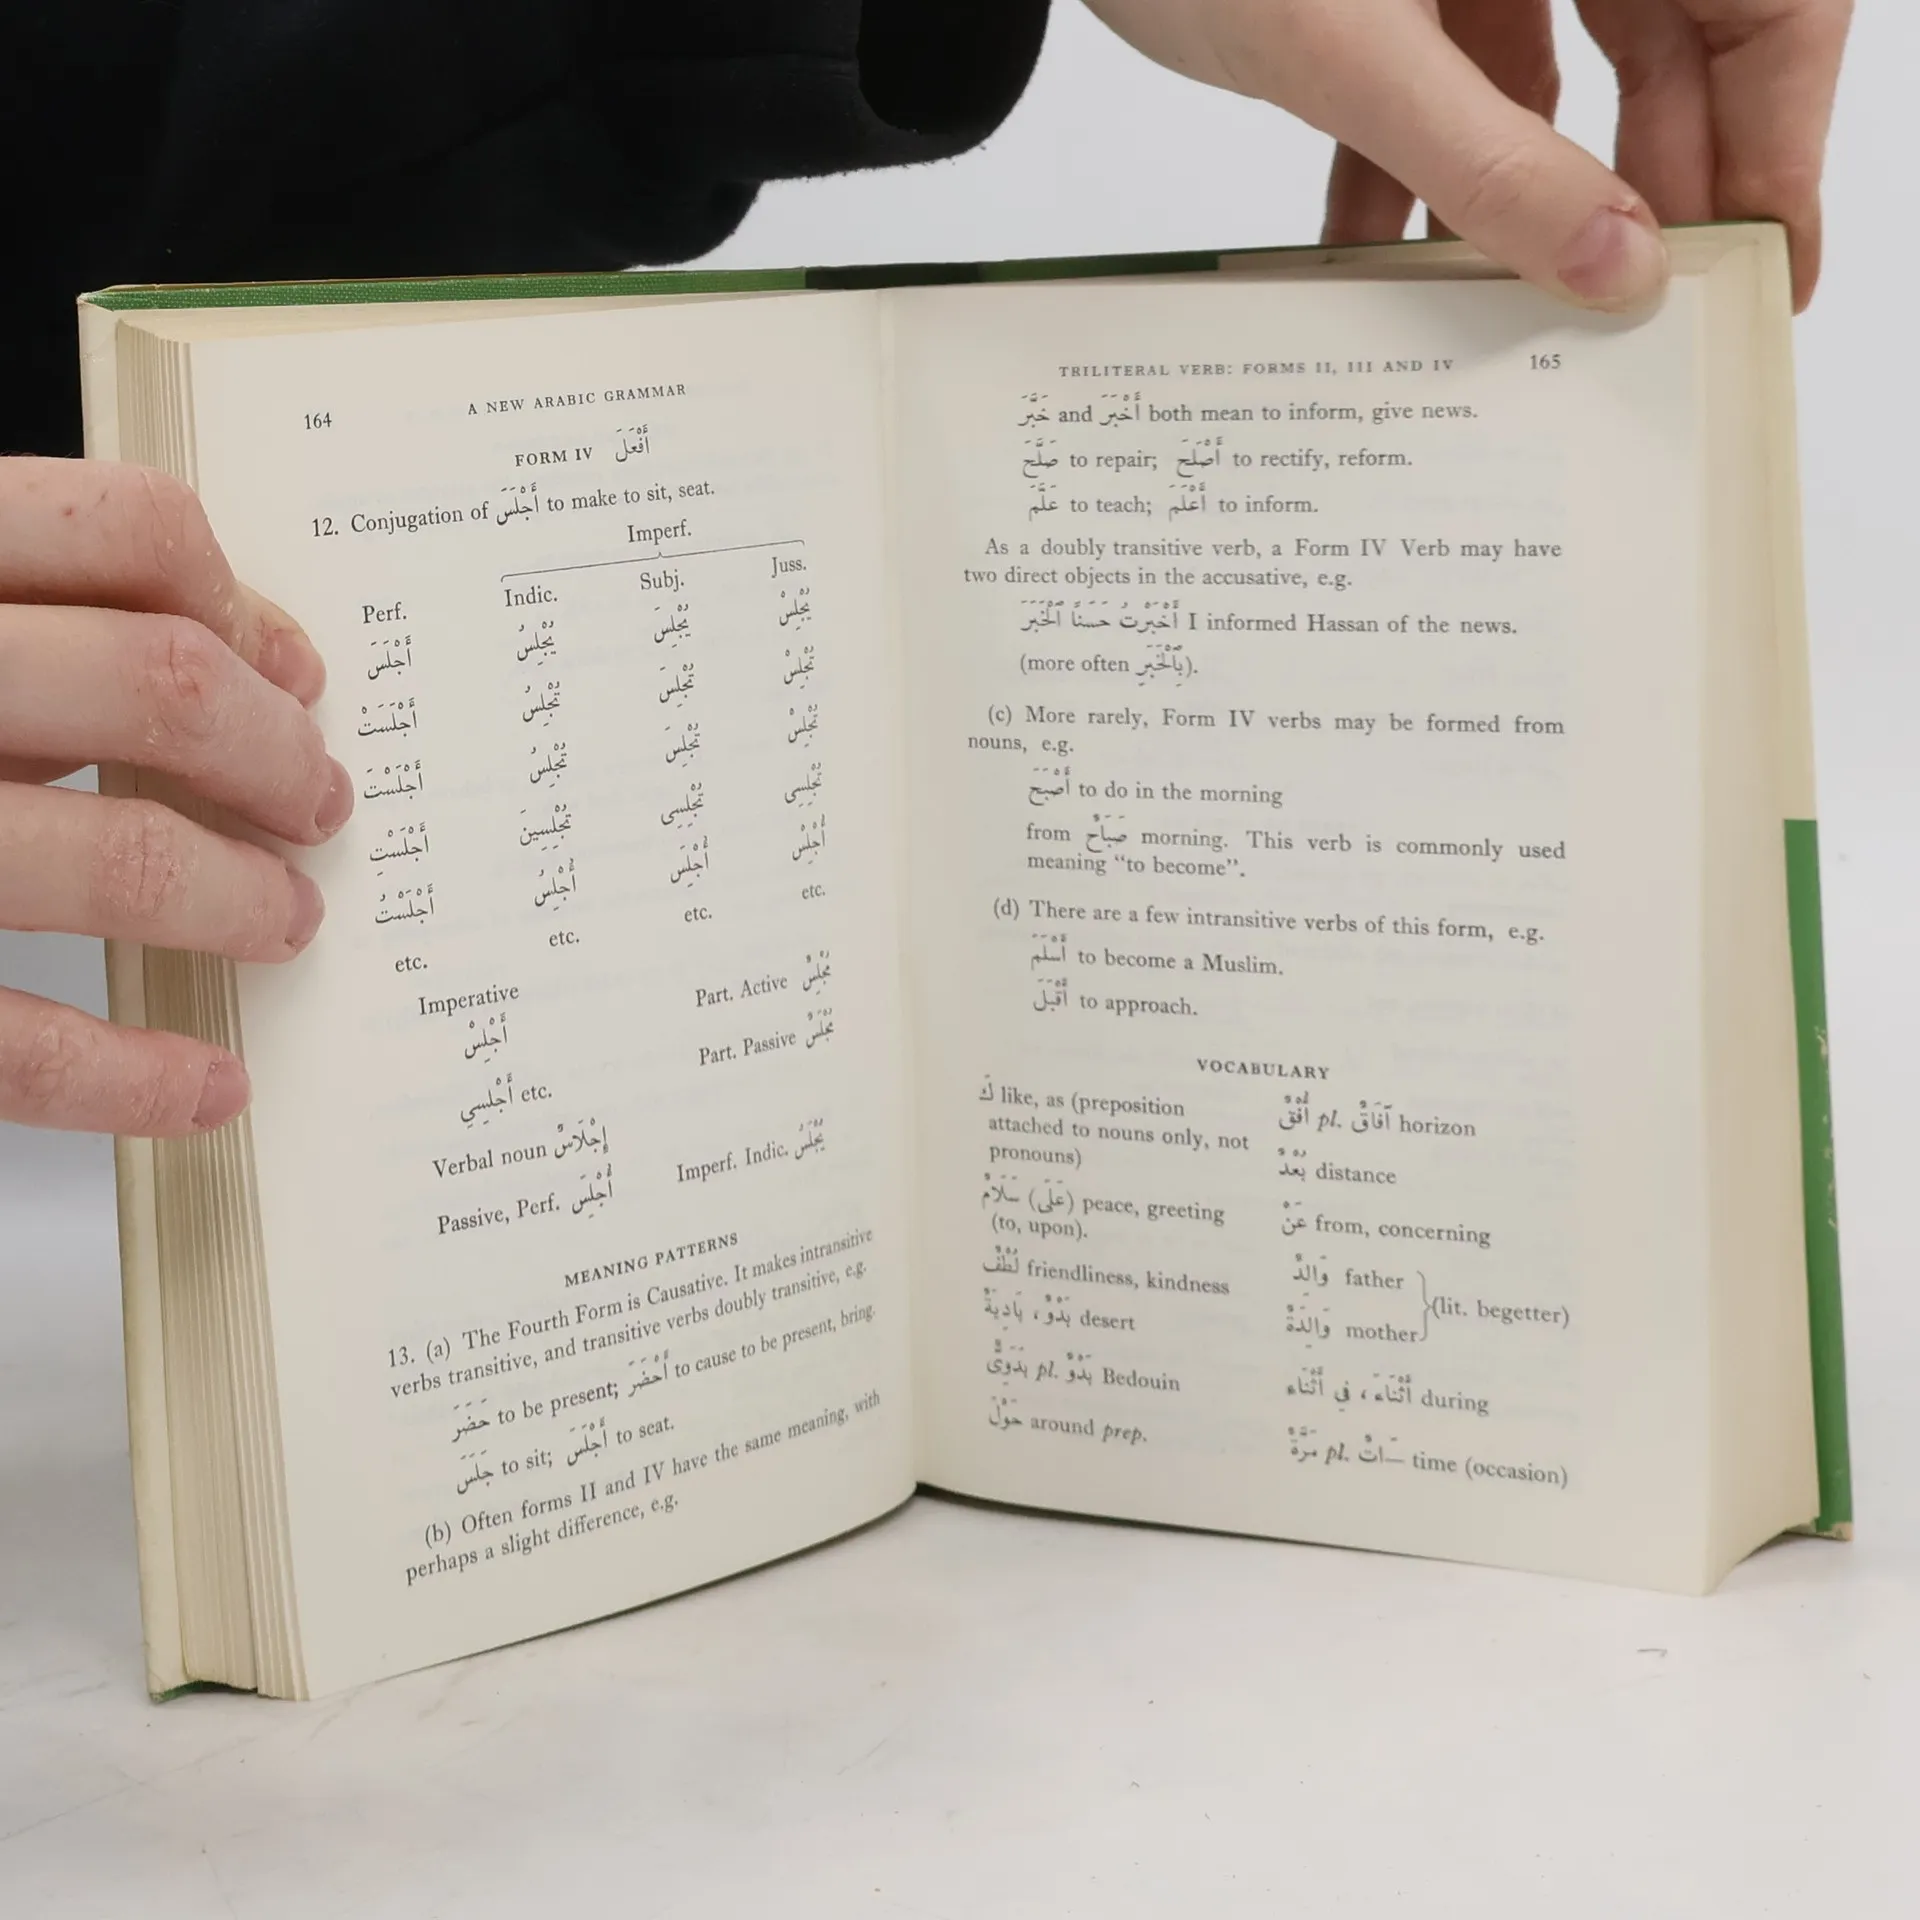 164
A NEW ARABIC GRAMMAR
FORM IV أَفْعَلَ
12. Conjugation of أَجْلَسَ to make to sit, seat.
Imperf.
Perf. Indic. Subj. Juss.
أَجْلَسَ يُجْلِسُ يُجْلِسَ يُجْلِسْ
أَجْلَسَتْ تُجْلِسُ تُجْلِسَ تُجْلِسْ
أَجْلَسْتَ تُجْلِسُ تُجْلِسَ تُجْلِسْ
أَجْلَسْتِ تُجْلِسِينَ تُجْلِسِى تُجْلِسِى
أَجْلَسْتُ أُجْلِسُ أُجْلِسَ أُجْلِسْ
etc. etc. etc. etc.
Imperative Part. Active مُجْلِسٌ
أَجْلِسْ Part. Passive مُجْلَسٌ
أَجْلِسِي etc.
Verbal noun إِجْلَاسٌ
Passive, Perf. أُجْلِسَ Imperf. Indic. يُجْلَسُ
MEANING PATTERNS
13. (a) The Fourth Form is Causative. It makes intransitive
verbs transitive, and transitive verbs doubly transitive, e.g.
حَضَرَ to be present; أَحْضَرَ to cause to be present, bring.
جَلَسَ to sit; أَجْلَسَ to seat.
(b) Often forms II and IV have the same meaning, with
perhaps a slight difference, e.g.
TRILITERAL VERB: FORMS II, III AND IV 165
خَبَّرَ and أَخْبَرَ both mean to inform, give news.
صَلَّحَ to repair; أَصْلَحَ to rectify, reform.
عَلَّمَ to teach; أَعْلَمَ to inform.
As a doubly transitive verb, a Form IV Verb may have
two direct objects in the accusative, e.g.
أَخْبَرْتُ حَسَنًا ٱلْخَبَرَ I informed Hassan of the news.
(more often بِٱلْخَبَرِ).
(c) More rarely, Form IV verbs may be formed from
nouns, e.g.
أَصْبَحَ to do in the morning
from صَبَاح morning. This verb is commonly used
meaning “to become”.
(d) There are a few intransitive verbs of this form, e.g.
أَسْلَمَ to become a Muslim.
أَقْبَلَ to approach.
VOCABULARY
كَ like, as (preposition
attached to nouns only, not
pronouns)
سَلَامٌ (عَلَى) peace, greeting
(to, upon).
لُطْفٌ friendliness, kindness
بَدْوٌ ، بَادِيَةٌ desert
بَدَوِىٌّ pl. بَدْوٌ Bedouin
حَوْلَ around prep.
أُفُقٌ pl. آفَاقٌ horizon
بُعْدٌ distance
عَنْ from, concerning
وَالِدٌ father
(lit. begetter)
وَالِدَةٌ mother
أَثْنَاءَ ، فِي أَثْنَاءِ during
مَرَّةٌ pl. ـَاتٌ time (occasion)